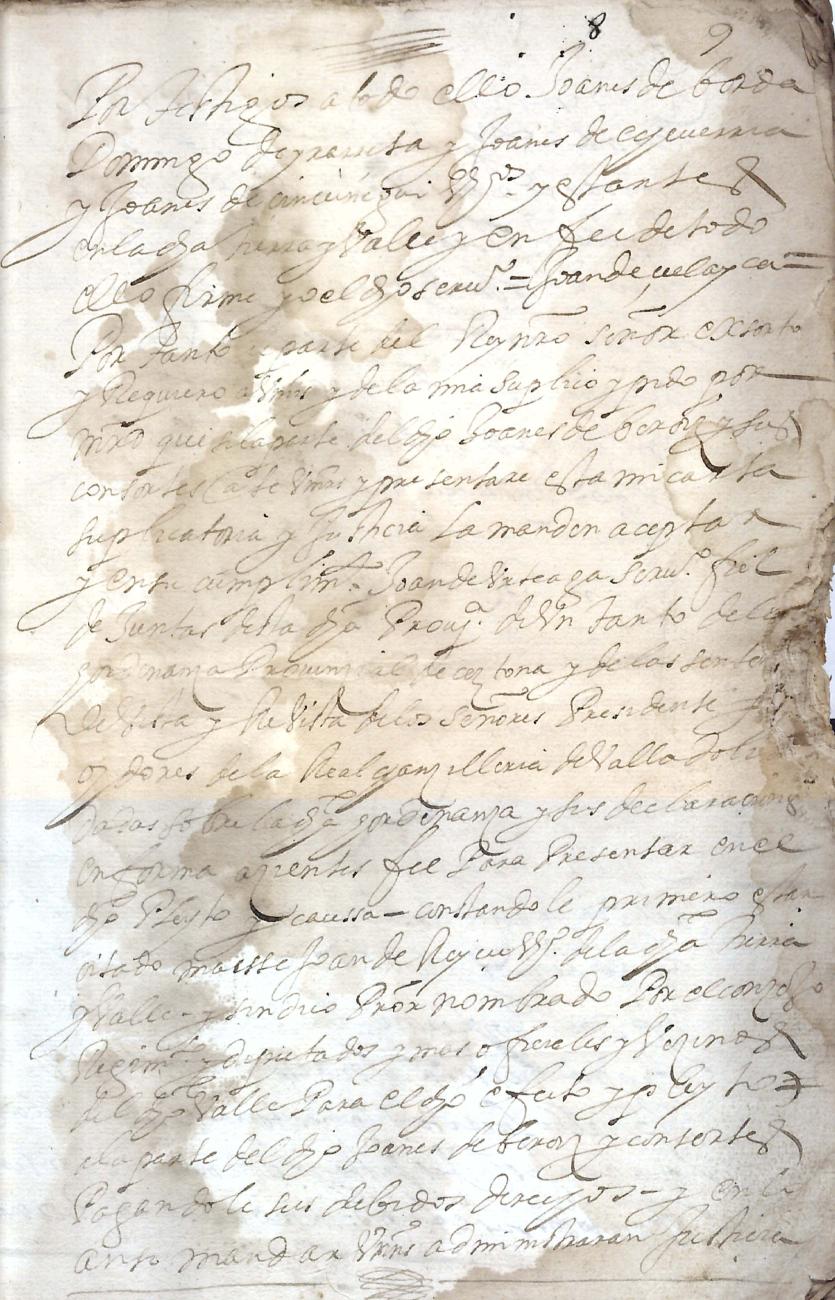 8 9
Por testigos a todo ello Joanes de borda
Domingo de yrarreta y Joanes de echeverria
y Joanes de cincunegui Vzos y estantes
en la dha tierra y Valle y en fee de todo
ello firme yo el dho scruo = Joan de velayca =
Por tanto parte del Rey nro señor exsorto
y Requiero a Vms y de la mia suplico y pido por
mrd que si la parte del dho Joanes de beroiz y sus
consortes ante Vms y presentare esta mi carta
suplicatoria y Justicia la manden aceptar
y en su cumplimto Joan de Vrteaga scruo fiel
de Juntas desta dha Prouja de Vn tanto de la
hordenança Prouincial de cestona y de las senten
de Vista y Re Vista de los señores Presidente y
oydores de la Real chanzilleria de Valladolid
dadas sobre la dha hordenanza y sus declaraciones
en forma que haga fee Para Presentar en el
dho Pleyto y caussa – constandole primero estar
citado maisse Joan de Rejeu Vzo de la dha tierra
y Valle – y sindico Pror nombrado Por el conzejo
Regimto y diputados y mas officiales y Vezinos
del dho Valle Para el dho efecto y pleytos
a la parte del dho Joanes de beroiz y consortes
Pagandole sus debidos derechos – y en lo
ansi mandar Vms administraran Justicia